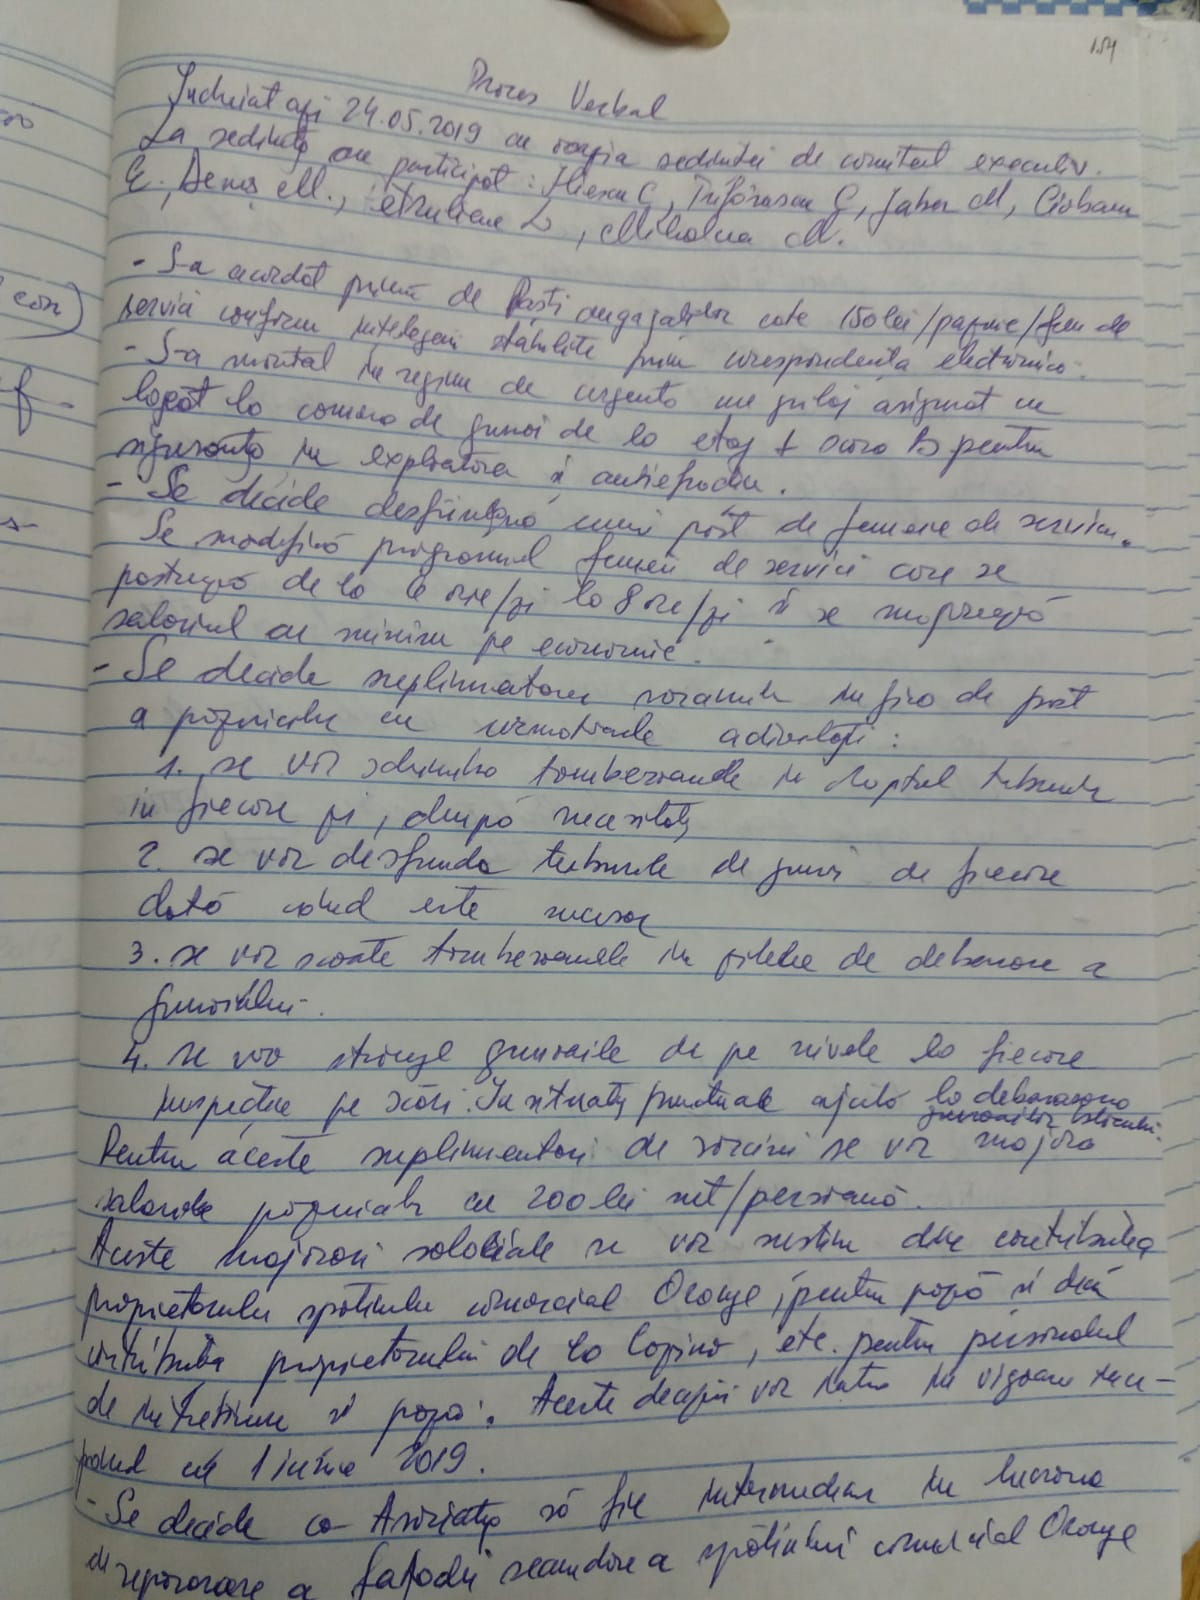 154
Proces Verbal
Incheiat azi 24.05.2019 cu ocazia sedintei de comitet executiv.
La sedinta au participat: Iliescu C, Trifonescu G, Gabor M, Ciobanu
E., Denis M., L, Mihalcea M.
- S-a acordat prima de Paști angajatilor cate 150 lei/paznic/fem de
servici conform intelegerii stabilite prin corespondenta electronica.
- S-a montat in regim de urgenta un grilaj asigurat cu
lacăt la camera de gunoi de la etaj 1 scara B pentru
siguranta in exploatare si antiefractie.
- Se decide desfiintarea unui post de femeie de serviciu.
Se modifică programul femeii de servici care se
pastrează de la 6 ore/zi la 8 ore/zi si se majorează
salariul cu minim pe economie.
- Se decide suplimentarea sarcinilor in fisa de post
a paznicilor cu urmatoarele activitați:
1. se vor schimba tomberoanele in dreptul tubului
in fiecare zi, după necesitați
2. se vor desfunda tuburile de gunoi de fiecare
dată când este necesar
3. se vor scoate tomberoanele in zilele de debarasare a
gunoiului.
4. se vor strange gunoaiele de pe nivele la fiecare
inspectie pe scări. In situatii punctuale ajută la debarasarea
gunoaielor
Pentru aceste suplimentari de sarcini se vor majora
salariile paznicilor cu 200 lei net/persoană.
Aceste majorari salariale se vor sustine din contributia
proprietarului spatiului comercial Orange, pentru pază si din
contributia proprietarului de la, etc. pentru personalul
de intretinere si pază. Aceste decizii vor intra in vigoare ince-
pand cu 1 iunie 2019.
- Se decide ca Asociatia să fie intermediar in lucrarea
de reparare a fatadei secundare a spatiului comercial Orange